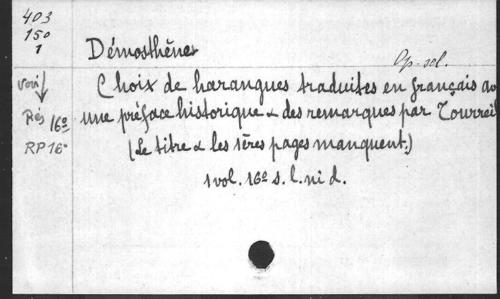 403
150
1
Démosthènes
Op. sel.
Choix de harangues traduites en français av
une préface historique & des remarques par Tourreil
(Le titre & les 1ères pages manquent.)
1 vol. 16º s. l. ni d.
voir
Rés 16º
RP 16º